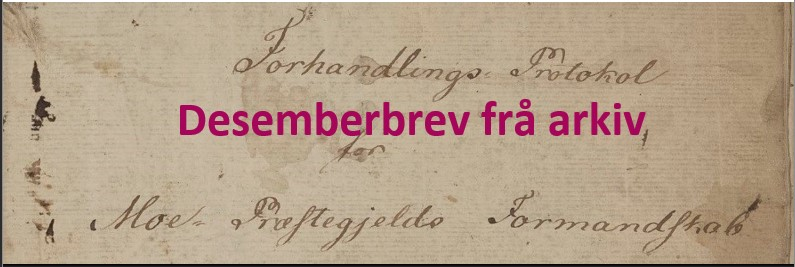 Forhandlings-Protokol
Desemberbrev frå arkiv
for
Moe- Præstegjelds Formandskab